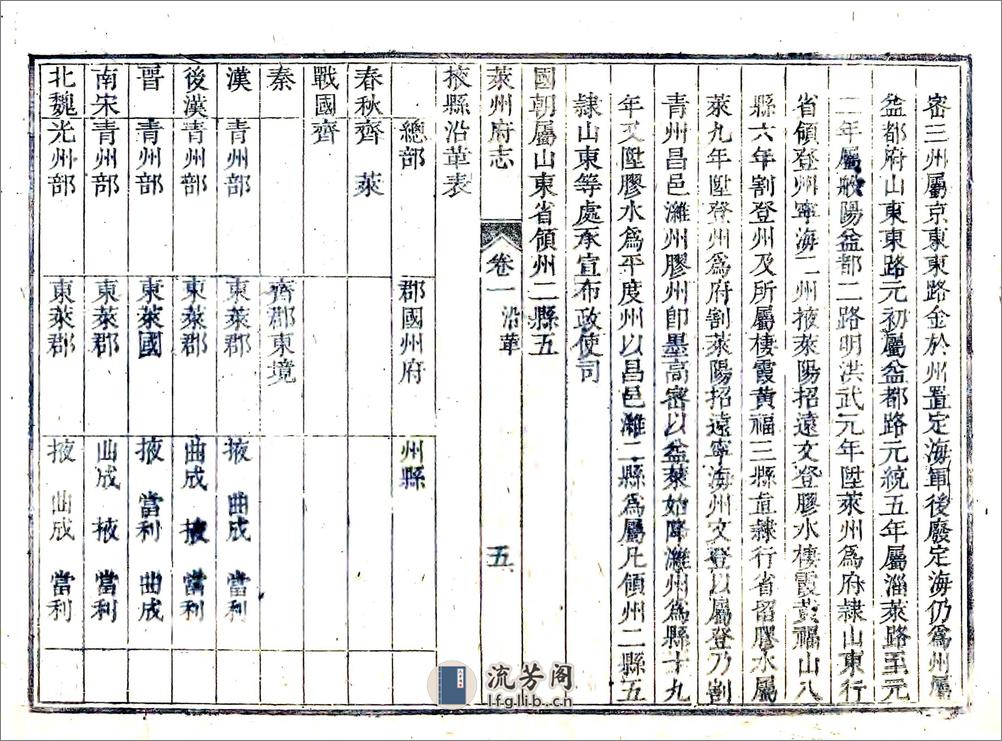 密三州屬京東東路金於州置定海軍後廢定海仍為州屬
益都府山東東路元初屬益都路元統五年屬淄萊路至元
二年屬般陽益都二路明洪武元年陞萊州為府隸山東行
省領登州寧海二州掖萊陽招遠文登膠水棲霞黃福山八
縣六年割登州及所屬棲霞黃福三縣直隸行省留膠水屬
萊九年陞登州為府割萊陽招遠寧海州文登以屬登乃割
青州昌邑濰州膠州卽墨高密以益萊始降濰州為縣十九
年又陞膠水為平度州以昌邑濰二縣為屬凡領州二縣五
隸山東等處承宣布政使司
國朝屬山東省領州二縣五
萊州府志 卷一 沿革 五
掖縣沿革表
總部 郡國州府 州縣
春秋 齊 萊
戰國 齊
秦 齊郡東境
漢 青州部 東萊郡 掖 曲成 當利
後漢 青州部 東萊郡 曲成 掖 當利
晉 青州部 東萊國 掖 當利 曲成
南宋 青州部 東萊郡 曲成 掖 當利
北魏 光州部 東萊郡 掖 曲成 當利
流芳阁
lfglib.cn